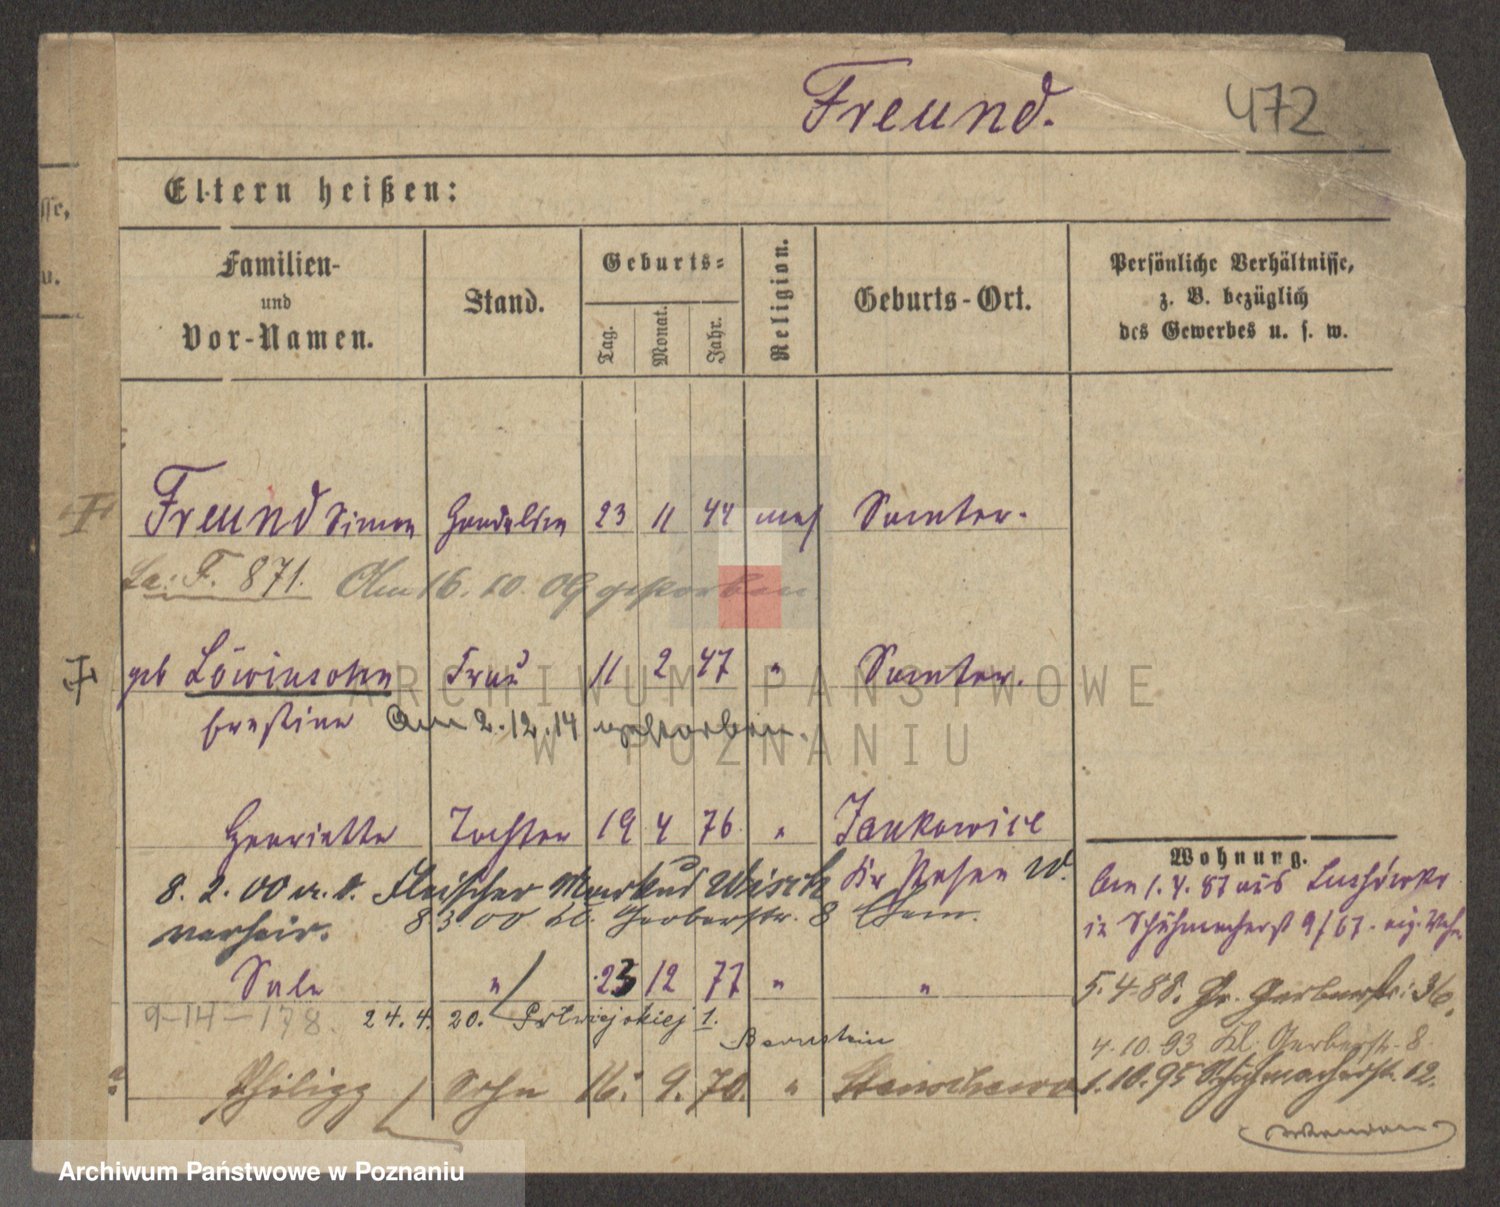 Freund. 472
Eltern heißen:
sse,
u.
Familien-
und
Vor-Namen.
Stand.
Geburts-
Tag.
Monat.
Jahr.
Religion.
Geburts-Ort.
Persönliche Verhältnisse,
z. B. bezüglich
des Gewerbes u. s. w.
Freund Simon Handelsm 23 11 44 mos Samter.
La: F. 871. Am 16. 10. 09 gestorben
geb Löwinsohn Frau 11 2 47 " Samter.
Ernstine Am 2.12.14 gestorben.
Henriette Tochter 19 4 76 " Jankowice
Kr Posen W.
8. 2. 00 a. d. Fleischer Markus Wisch
verheir. 8 3 00 Kl. Gerberstr. 8
Sale " 23 12 77 " "
9-14-178. 24. 4. 20. 1.
Bernstein
Philipp Sohn 16. 9. 70. "
Wohnung.
Am 1. 4. 87 aus
in Schuhmacherst 9/67.
5. 4. 88. Gr. Gerberstr: 36.
4. 10. 93 Kl. Gerberstr. 8
1. 10. 95 Schuhmacherstr. 12.
ARCHIWUM PAŃSTWOWE
W POZNANIU
Archiwum Państwowe w Poznaniu